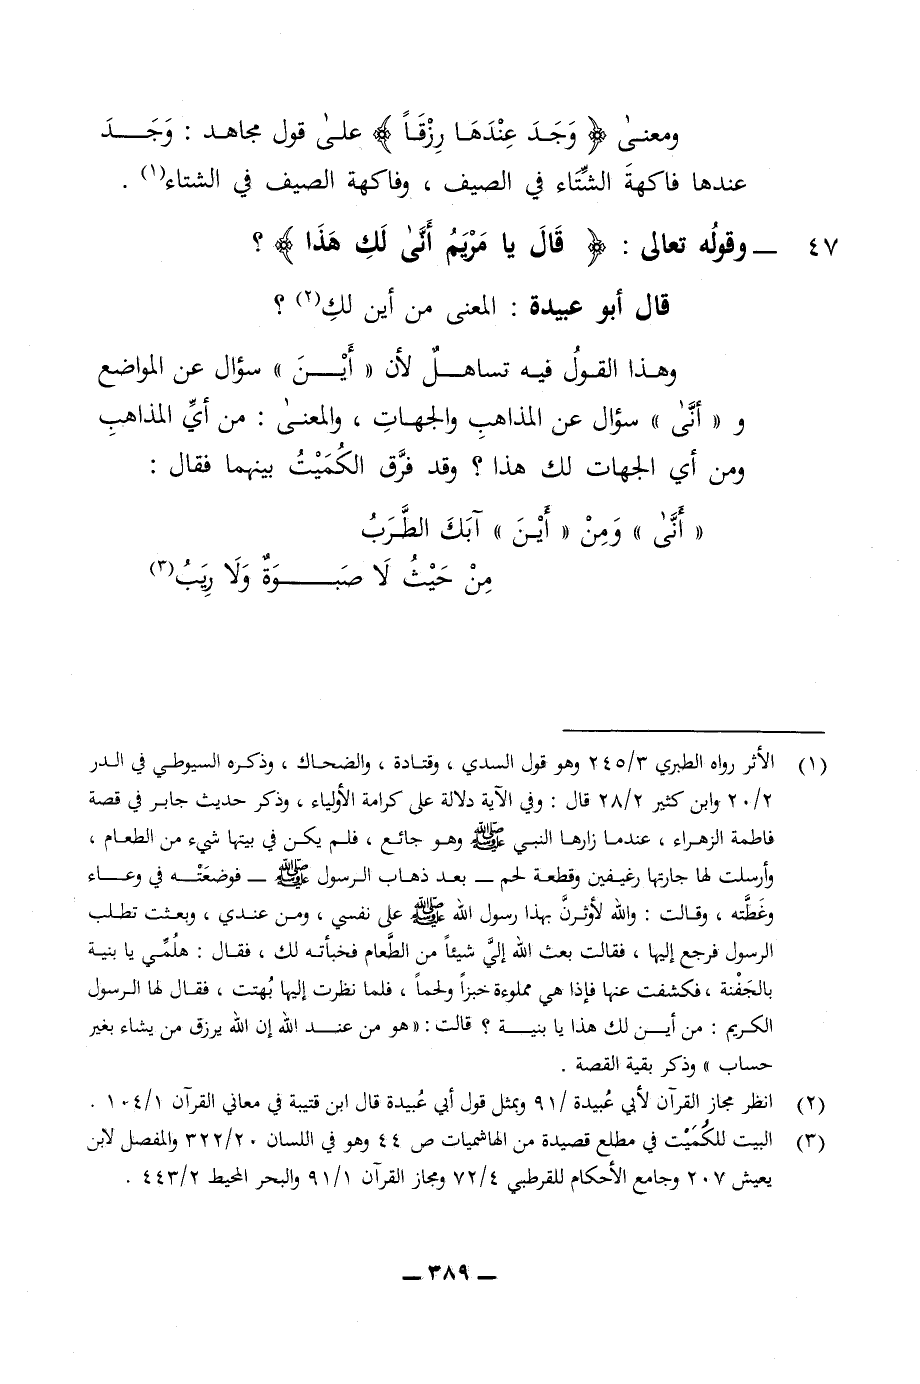 ومعنىٰ ﴿ وَجَدَ عِنْدَهَا رِزْقَاً ﴾ علىٰ قول مجاهد : وَجَــدَ
عندها فاكهةَ الشِّتَاء في الصيف ، وفاكهة الصيف في الشتاء(١) .
٤٧ ـــ وقولُه تعالى : ﴿ قَالَ يا مَرْيَمُ أَنَّىٰ لَكِ هَذَا ﴾ ؟
قال أبو عبيدة : المعنى من أين لكِ(٢) ؟
وهـذا القـولُ فيـه تساهـلٌ لأن « أَيْـنَ » سؤال عن المواضع
و « أَنَّىٰ » سؤال عن المذاهبِ والجهـاتِ ، والمعنـىٰ : من أيِّ المذاهبِ
ومن أي الجهات لك هذا ؟ وقد فرَّق الكُمَيْتُ بينهما فقال :
« أَنَّىٰ » وَمِنْ « أَيْـنَ » آبَكَ الطَّرَبُ
مِنْ حَيْثُ لَا صَبْـوَةٌ وَلَا رِيَبُ(٣)
(١) الأثر رواه الطبري ٢٤٥/٣ وهو قول السدي ، وقتادة ، والضحاك ، وذكره السيوطي في الدر
٢٠/٢ وابن كثير ٢٨/٢ قال : وفي الآية دلالة على كرامة الأولياء ، وذكر حديث جابر في قصة
فاطمة الزهراء ، عندما زارها النبي ﷺ وهو جائع ، فلم يكن في بيتها شيء من الطعام ،
وأرسلت لها جارتها رغيفين وقطعة لحم ـــ بعد ذهاب الرسول ﷺ ـــ فوضعَتْـه في وعـاء
وغَطَّته ، وقالت : والله لأوثرنَّ بهذا رسول الله ﷺ على نفسي ، ومن عندي ، وبعثت تطلب
الرسول فرجع إليها ، فقالت بعث الله إليَّ شيئاً من الطَّعام فخبأته لك ، فقال : هلُمِّي يا بنية
بالجَفْنة ، فكشفت عنها فإذا هي مملوءة خبزاً ولحماً ، فلما نظرت إليها بُهتت ، فقال لها الرسول
الكريم : من أيـن لك هذا يا بنيـة ؟ قالت : « هو من عنـد الله إن الله يرزق من يشاء بغير
حساب » وذكر بقية القصة .
(٢) انظر مجاز القرآن لأبي عُبيدة /٩١ وبمثل قول أبي عُبيدة قال ابن قتيبة في معاني القرآن ١٠٤/١ .
(٣) البيت للكُمَيْت في مطلع قصيدة من الهاشميات ص ٤٤ وهو في اللسان ٣٢٢/٢٠ والمفصل لابن
يعيش ٢٠٧ وجامع الأحكام للقرطبي ٧٢/٤ ومجاز القرآن ٩١/١ والبحر المحيط ٤٤٣/٢ .
ـــ ٣٨٩ ـــ